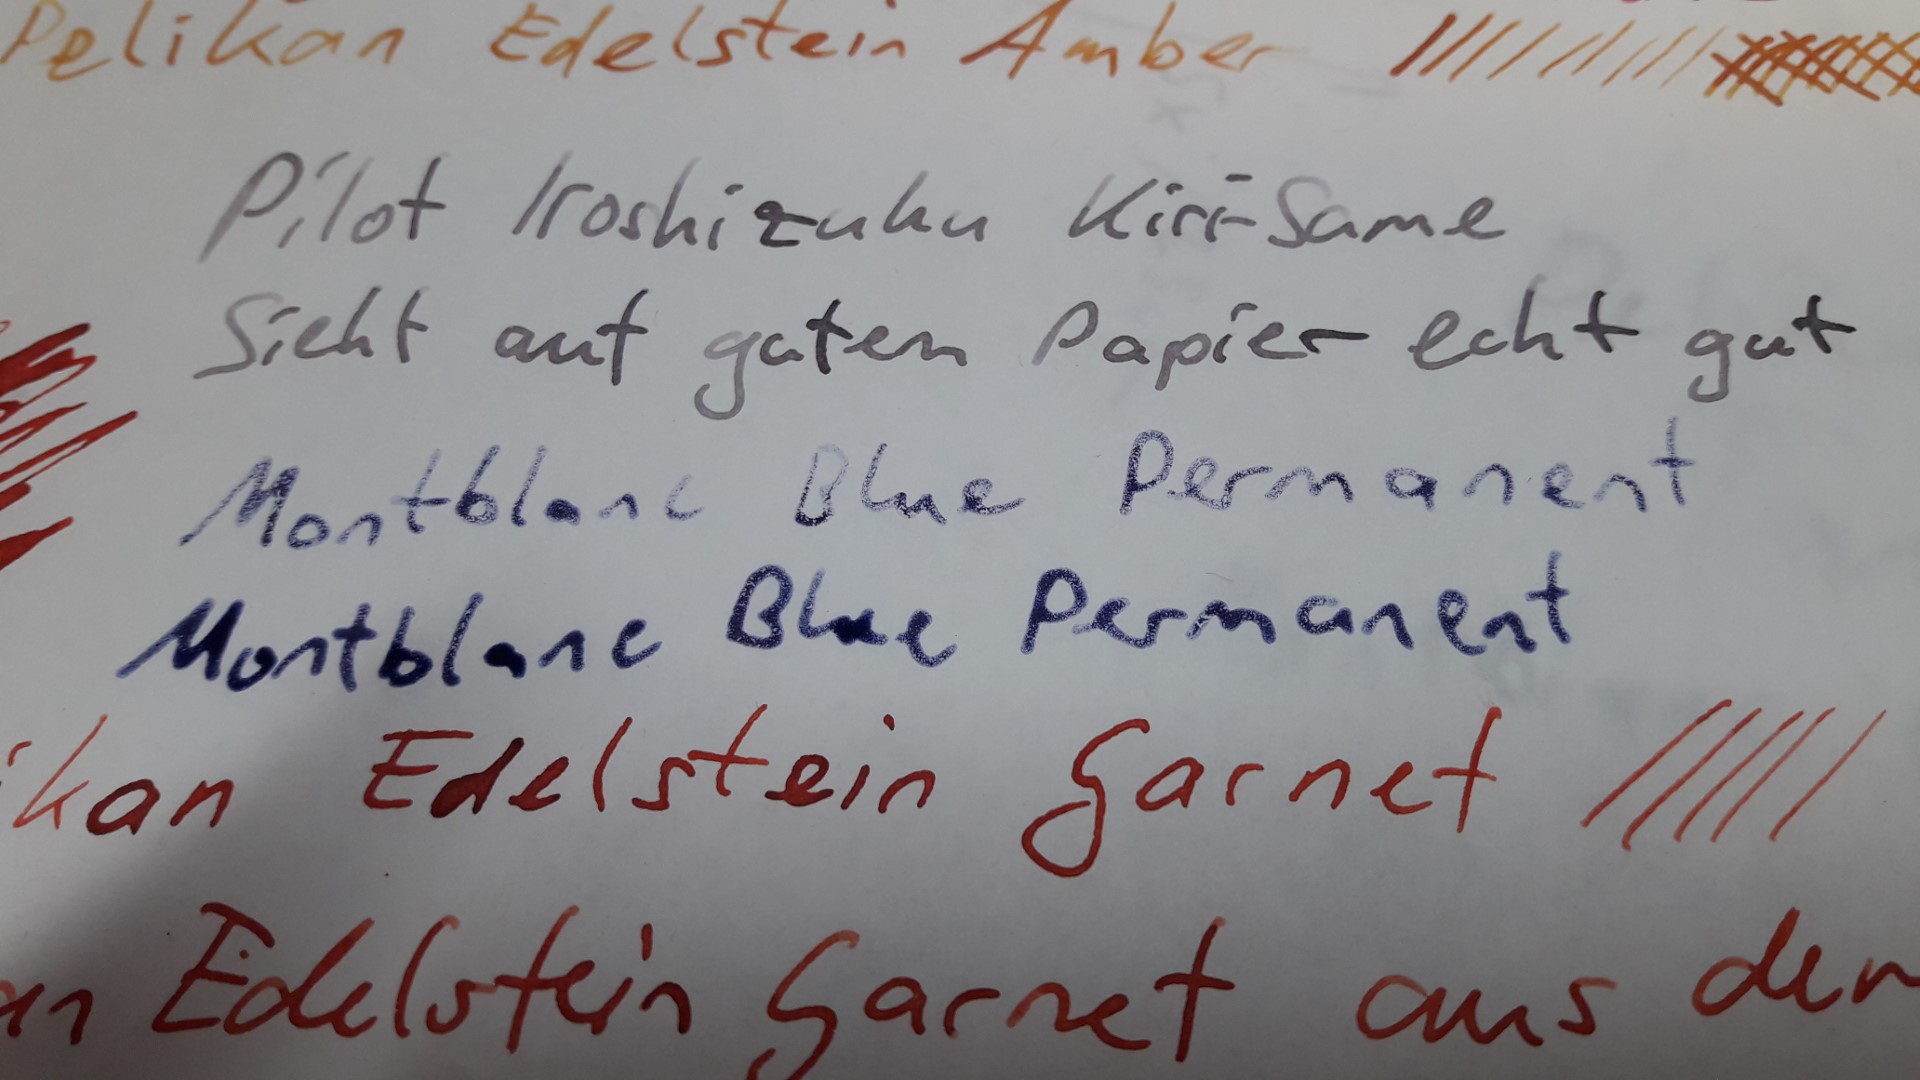 Pelikan Edelstein Amber
Pilot Iroshizuku Kiri-Same
Sieht auf guten Papier echt gut
Montblanc Blue Permanent
Montblanc Blue Permanent
ikan Edelstein Garnet
an Edelstein Garnet aus dem